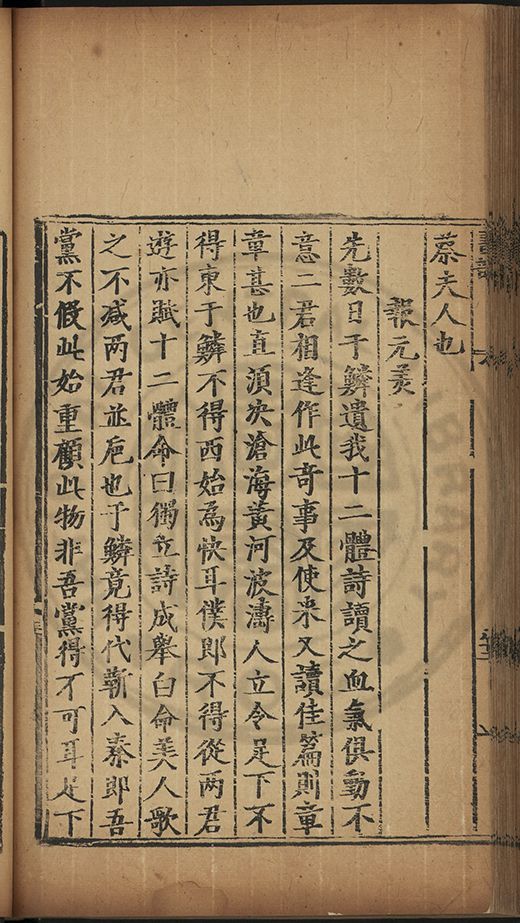 蔡夫人也
報元美
先數日于鱗遺我十二體詩讀之血氣俱動不
意二君相逢作此奇事及使来又讀佳篇則章
章甚也直須决滄海黃河波濤人立令足下不
得東于鱗不得西始為快耳僕即不得從兩君
遊亦賦十二體命曰獨立詩成舉白命美人歌
之不减两君並巵也于鱗竟得代蘄入秦即吾
黨不假此始重顧此物非吾黨得才可耳足下